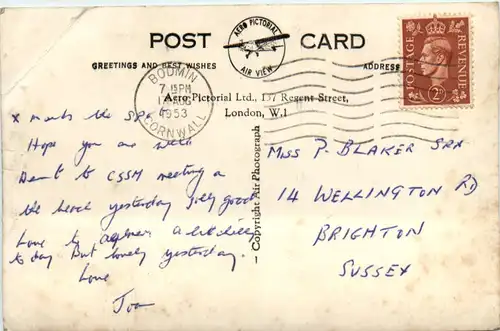 POST CARD
AERO PICTORIAL
AIR VIEW
GREETINGS AND BEST WISHES
ADDRESS
BODMIN
7 15PM
AUG
1953
CORNWALL
POSTAGE REVENUE
2D
Aero Pictorial Ltd., 137 Regent Street,
London, W.1
— Copyright Air Photograph —
x marks the
Hope you are well
to CSSM meeting on
the beach yesterday jolly good
Love to a bit chilly
to day But lovely yesterday.
Love
Joan
MISS P. BLAKER SRN
14 WELLINGTON RD
BRIGHTON
SUSSEX